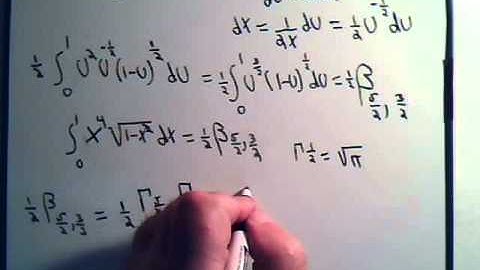 dx = 1/2x du = 1/2 u^-1/2 du
1/2 ∫₀¹ u² u^-1/2 (1-u)^1/2 du = 1/2 ∫₀¹ u^3/2 (1-u)^1/2 du = 1/2 β 5/2, 3/2
∫₀¹ x⁴ √(1-x²) dx = 1/2 β 5/2, 3/2 Γ 1/2 = √π
1/2 β 5/2, 3/2 = 1/2 Γ 5/2 Γ